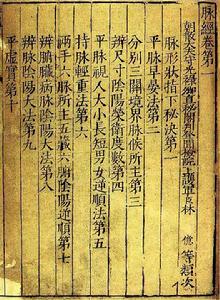 脉經卷第一
朝散大夫守光祿卿直祕閣判登聞檢院上護軍臣林
億等類次
脉形狀指下秘決第一
平脉早晏法第二
分別三關境界脉候所主第三
辨尺寸陰陽榮衛度數第四
平脉視人大小長短男女逆順法第五
持脉輕重法第六
兩手六脉所主五藏六腑陰陽逆順第七
辨臟腑病脉陰陽大法第八
辨脉陰陽大法第九
平虛實第十